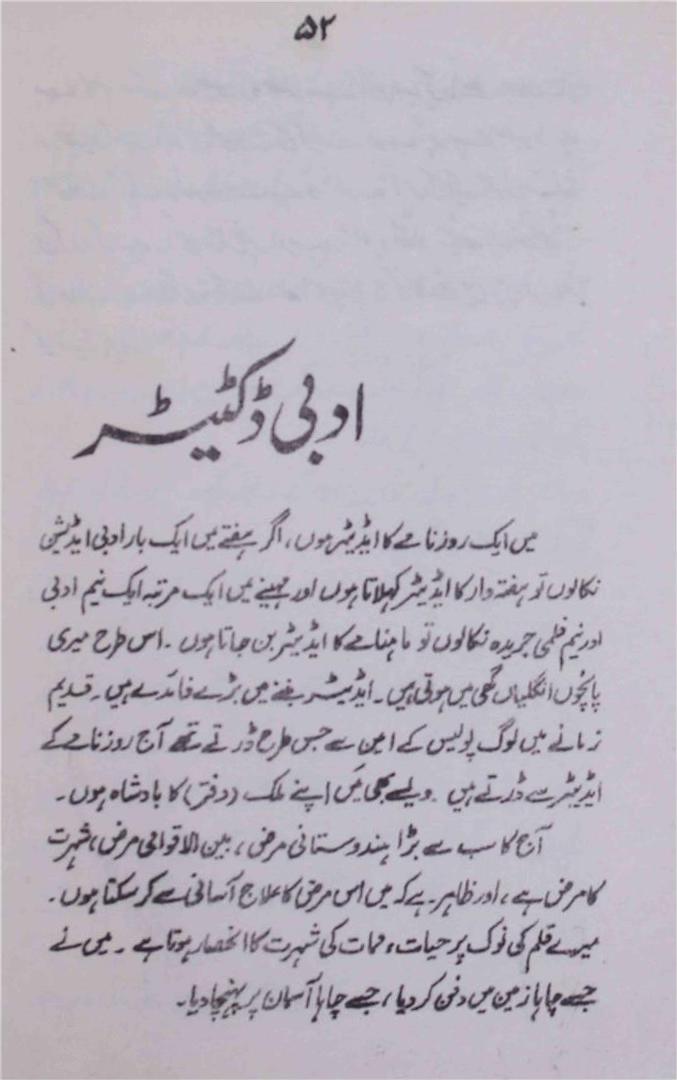 ۵۲
ادبی ڈکٹیٹر
میں ایک روزنامے کا ایڈیٹر ہوں، اگر ہفتے میں ایک بار ادبی ایڈیشن
نکالوں تو ہفتہ وار کا ایڈیٹر کہلاتا ہوں اور مہینے میں ایک مرتبہ ایک نیم ادبی
اور نیم فلمی جریدہ نکالوں تو ماہنامے کا ایڈیٹر بن جاتا ہوں۔ اس طرح میری
پانچوں انگلیاں گھی میں ہوتی ہیں۔ ایڈیٹر بننے میں بڑے فائدے ہیں۔ قدیم
زمانے میں لوگ پولیس کے امین سے جس طرح ڈرتے تھے آج روزنامے کے
ایڈیٹر سے ڈرتے ہیں۔ ویسے بھی میں اپنے ملک (دفتر) کا بادشاہ ہوں۔
آج کا سب سے بڑا ہندوستانی مرض، بین الاقوامی مرض، شہرت
کا مرض ہے، اور ظاہر ہے کہ میں اس مرض کا علاج آسانی سے کر سکتا ہوں۔
میرے قلم کی نوک پر حیات و ممات کی شہرت کا انحصار ہوتا ہے۔ میں نے
جسے چاہا زمین میں دفن کر دیا، جسے چاہا آسمان پر پہنچا دیا۔